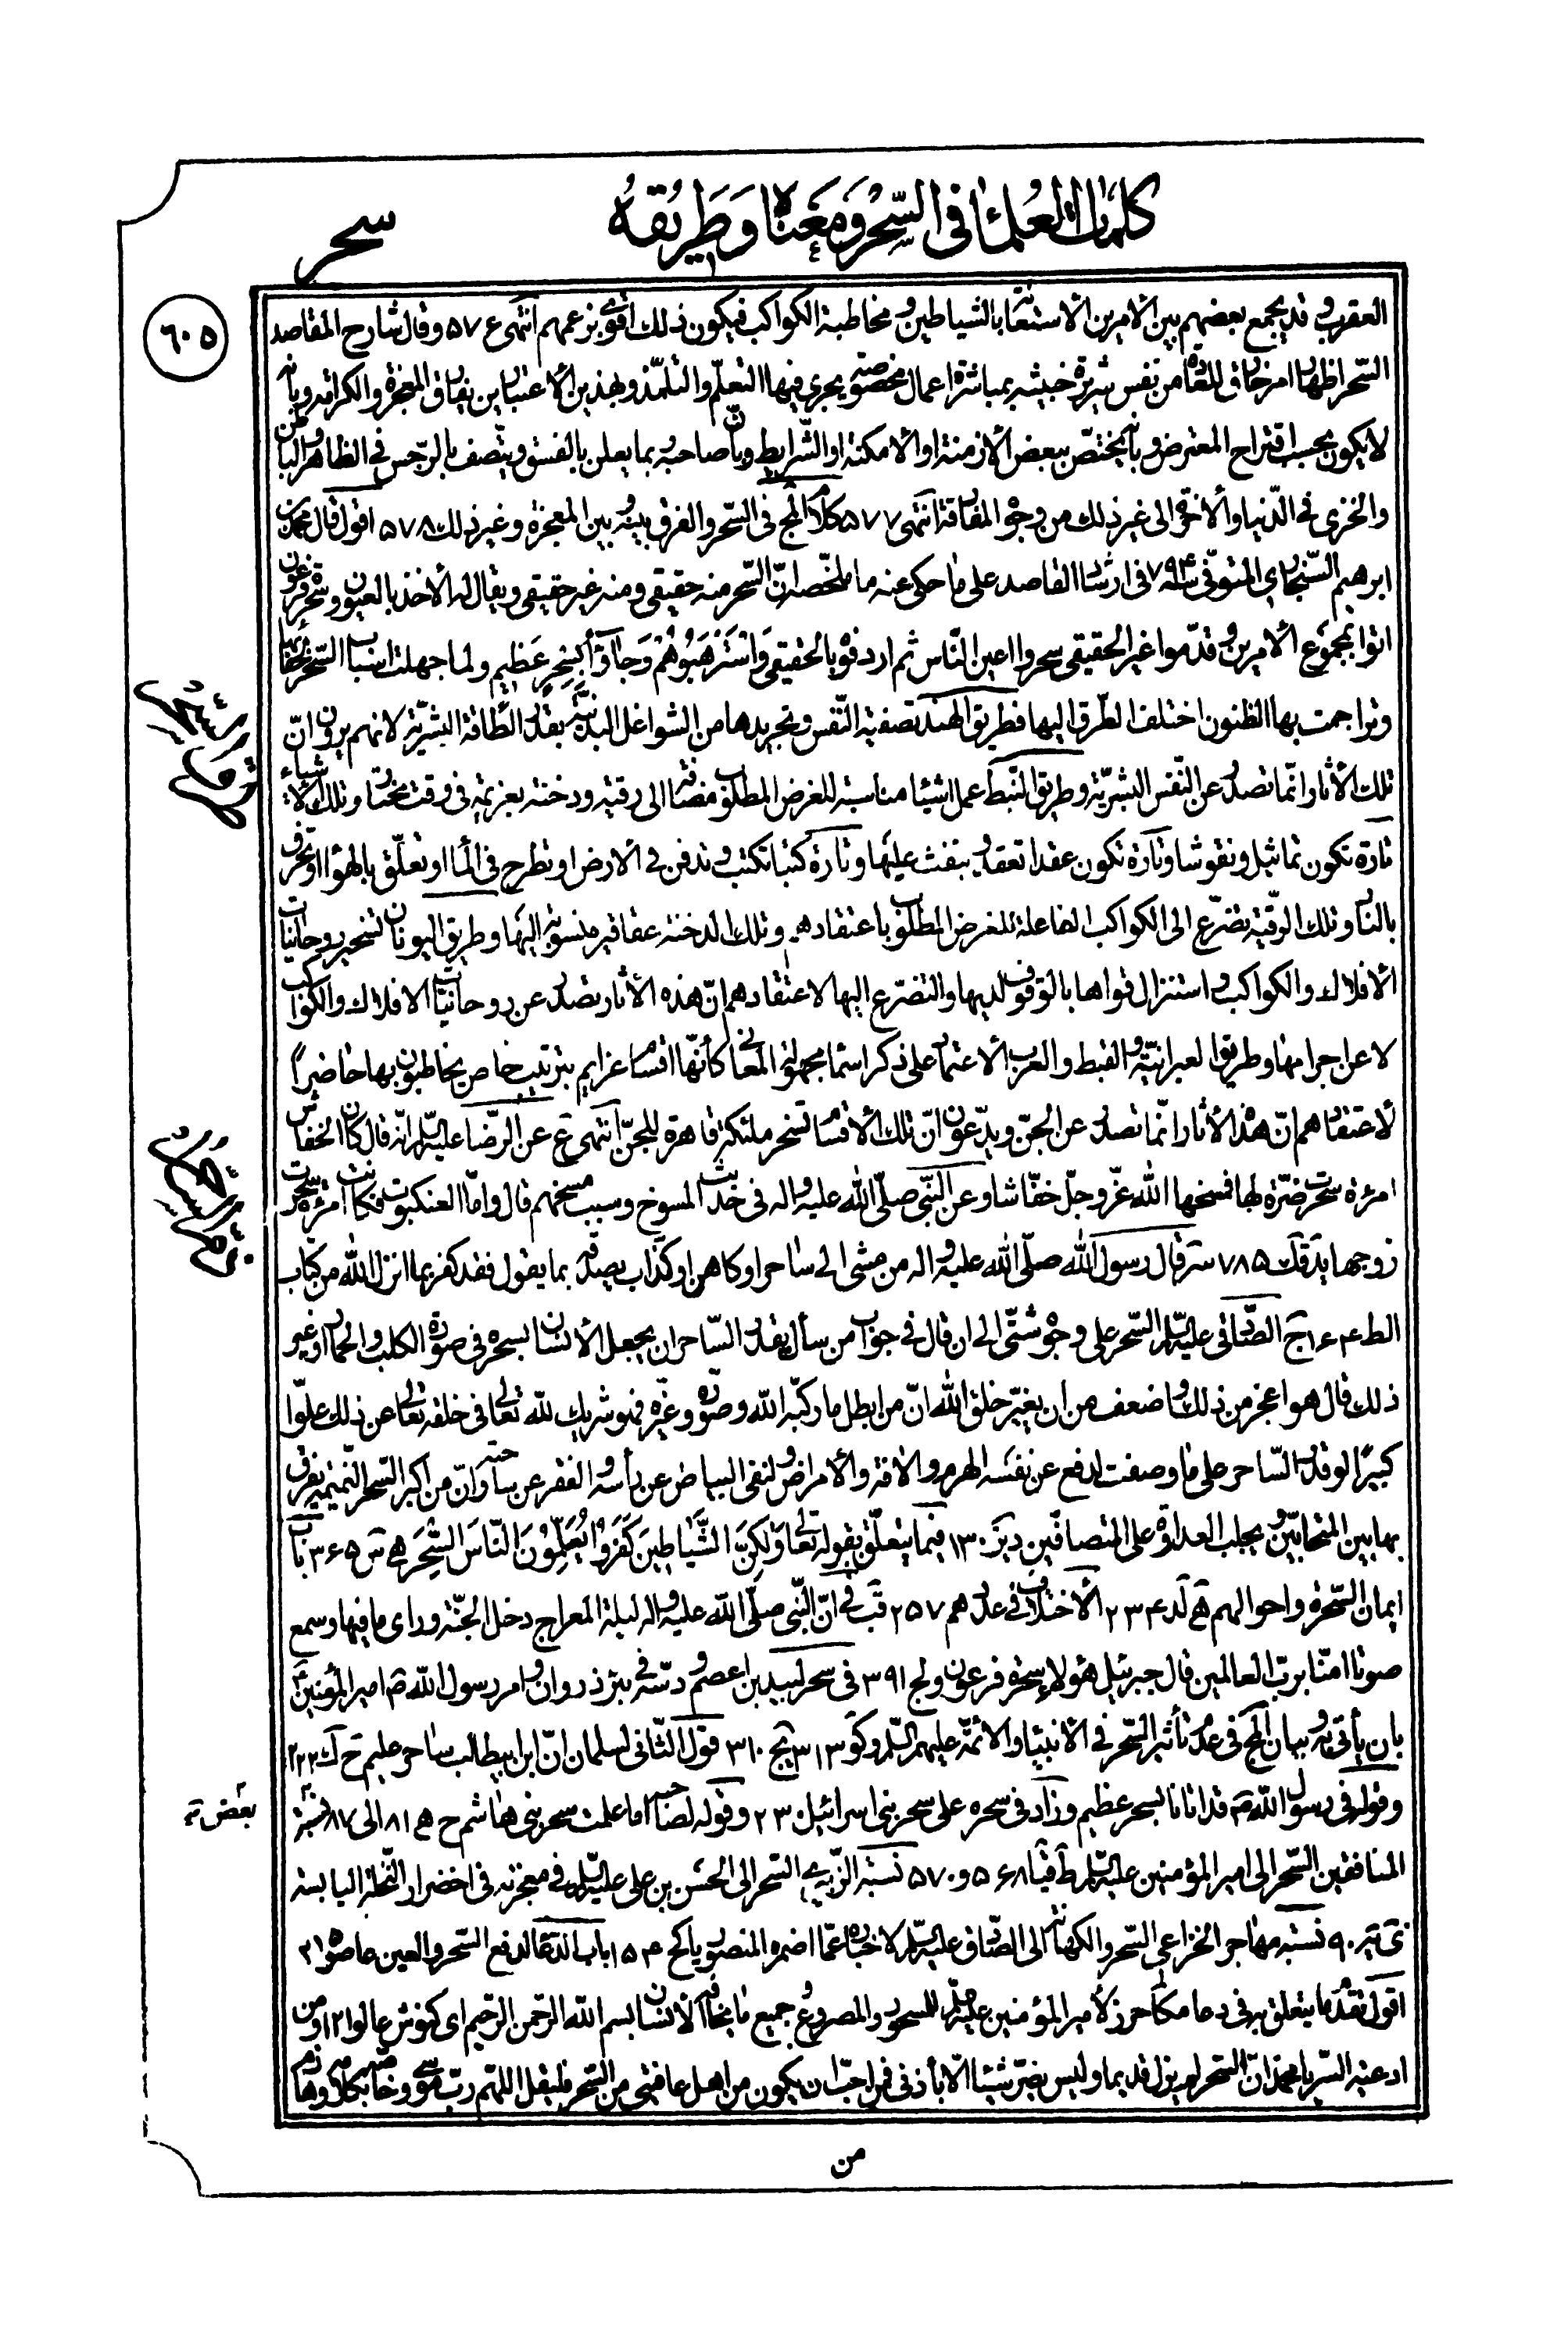 كلمات العلماء في السّحر ومعناه وطريقه
سحر
٦٠٥
العقرب وقد يجمع بعضهم بين الأمرين الاستعانة بالشياطين ومخاطبة الكواكب فيكون ذلك اقوى بزعمهم انتهى ع ٥٧ وقال شارح المقاصد
السّحر اظهار امر خارق للعادة من نفس شريرة خبيثة بمباشرة اعمال مخصوصة يجري فيها التعلّم والتلمّذ وبهذين الأعتبارين يفارق المعجزة والكرامة وبأنّه
لا يكون بحسب اقتراح المعترض وبأنّه يختصّ ببعض الأزمنة او الأمكنة او الشّرايط وبأنّ صاحبه بما يعلن بالفسق ويتّصف بالرّجس في الظاهر والباطن
والخزي في الدّنيا والأخرة الى غير ذلك من وجوه المفارقة انتهى ٥٧٧ كلام المج في السّحر والفرق بينه وبين المعجزة وغير ذلك ٥٧٨ اقول قال محمد بن
ابرهيم السّنجاري المتوفّى سنة ٧٩٤ في ارشاد القاصد على ما حكى عنه ما ملخّصه انّ السّحر منه حقيقي ومنه غير حقيقي ويقال له الأخذ بالعيون وسحرة فرعون
اتوا بمجموع الأمرين وقدّموا غير الحقيقي سحروا اعين النّاس ثم اردفوه بالحقيقي وَاسْتَرْهَبُوهُمْ وَجاؤُا بِسِحْرٍ عَظِيمٍ ولما جهلت اسباب السّحر لخفائها
وتراجمت بها الظنون اختلف الطّرق اليها فطريق الهند تصفية النّفس وتجريدها من الشواغل البدنيّة بقدر الطّاقة البشريّة لانهم يرون انّ
تلك الأثار انّما تصدر عن النّفس البشريّة وطريق النّبط عمل اشياء مناسبة للغرض المطلوب مضافة الى رقية ودخنة بعزيمة في وقت مختار وتلك الأشياء
تارة تكون تماثيل ونقوشا وتارة تكون عقدا تعقد وينفث عليها وتارة كتبا تكتب وتدفن في الأرض او تطرح في الماء او تعلّق بالهواء او تحرق
بالنار وتلك الرّقية تضرّع الى الكواكب الفاعلة للغرض المطلوب باعتقادهم وتلك الدخنة عقاقير منسوبة اليها وطريق اليونان تسخير روحانيات
الأفلاك والكواكب واستنزال قواها بالوقوف لديها والتضرّع اليها لاعتقادهم انّ هذه الأثار تصدر عن روحانيّات الافلاك والكواكب
لا عن اجرامها وطريق العبرانيّة والقبط والعرب الأعتماد على ذكر اسماء مجهولة المعاني كأنّها اقسام عزايم بترتيب خاص يخاطبون بها حاضرًا
لأعتقادهم انّ هذه الأثار انّما تصدر عن الجنّ ويدّعون انّ تلك الأقسام تسخر ملئكة قاهرة للجنّ انتهى ع عن الرّضا عليه السّلم انّه قال كان الخفاش
امرئة سحرت ضرّة لها فمسخها الله عزّ وجلّ خفّاشا وعن النّبي صلّى الله عليه واله في حديث المسوخ وسبب مسخهم قال وامّا العنكبوت فكانت امرئة سحرت
زوجها يد قك ٧٨٥ سر قال رسول الله صلّى الله عليه واله من مشى الى ساحر او كاهن او كذّاب يصدّقه بما يقول فقد كفر بما انزل الله من كتاب
الط ١٦٤ ج الصّادق عليه السّلم السّحر على وجوه شتّى الى ان قال في جواب من سأل يقدر السّاحر ان يجعل الأنسان بسحره في صورة الكلب والحمار او غير
ذلك قال هو اعجز من ذلك واضعف من ان يغيّر خلق الله انّ من ابطل ما ركّبه الله وصوّره وغيّره فهو شريك لله تعالى في خلقه تعالى عن ذلك علوّا
كبيرًا لو قدر السّاحر على ما وصفت لدفع عن نفسه الهرم والافة والأمراض ولنفى البياض عن رأسه والفقر عن ساحته وانّ من اكبر السّحر النّميمة يفرق
بها بين المتحابّين ويجلب العداوة على المتصافين د يز ١٣٠ فيما يتعلّق بقوله تعالى وَلكِنَّ الشَّياطِينَ كَفَرُوا يُعَلِّمُونَ النّاسَ السِّحْرَ ه س ٣٦٥ باب
ايمان السّحرة واحوالهم ه لد ٢٣٤ الأختلاف في عددهم ٢٥٧ قب في انّ النّبي صلّى الله عليه واله ليلة المعراج دخل الجنّة ورأى ما فيها وسمع
صوتا امنّا بربّ العالمين قال جبرئيل هؤلاء سحرة فرعون و لج ٣٩١ في سحر لبيد بن اعصم ودسّه في بئر ذروان وامر رسول الله ص امير المؤمنين
بان يأتي به وبيان المج في عدم تأثير السّحر في الأنبياء والأئمّة عليهم السّلم و كو ٣١٣ يج ٣١٠ قول الثّاني لسلمان انّ ابن ابيطالب ساحر عليم ح ك ٢٢٢
وقوله في رسول الله ص قد اتانا بسحر عظيم وزاد في سحره على سحر بني اسرائيل ٢٣٠ وقوله لصاحبه اما علمت سحر بني هاشم ح ه ٨١ الى ٨٧ نسبة
بعض
المنافقين السّحر الى امير المؤمنين عليه السّلم ط قيا ٥٦٨ و ٥٧٠ نسبة الزّبيري السّحر الى الحسن بن علي عليه السّلم في معجزته في اخضرار النّخلة اليابسة
ى يز ٩٠ نسبة مهاجر الخزاعي السّحر والكهانة الى الصّادق عليه السّلم لاخباره عمّا اضمره المنصور يا كح ١٥٤ باب الدّعاء لدفع السّحر والعين عا صه ٢١
اقول تقدّم ما يتعلق به في دعا مكا حرز لأمير المؤمنين عليه السّلم للمسحور والمصروع وجميع ما يخافه الأنسان بسم الله الرّحمن الرّحيم اى كنوش عا لو ٢١ ومن
ادعية السّر يا محمّد انّ السّحر لم يزل قديما وليس يضرّ شيئا الّا بأذني فمن احبّ ان يكون من اهل عافيتي من السّحر فليقل اللهم ربّ موسى وخاصّه بكلامه وهازم
من